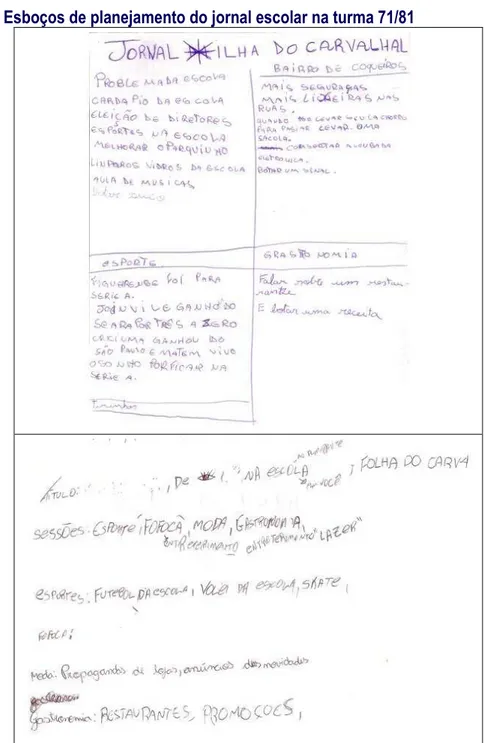 Esboços de planejamento do jornal escolar na turma 71/81
JORNAL DA ILHA DO CARVALHAL
PROBLEMA DA ESCOLA
CARDAPIO DA ESCOLA
ELEIÇÃO DE DIRETORES
ESPORTES NA ESCOLA
MELHORAR O PARQUINHO
VIDROS DA ESCOLA
AULA DE MUSICAS
BAIRRO DE COQUEIROS
MAIS SEGURAÇAS
MAIS LIXEIRAS NAS
RUAS.
QUANDO LEVAR CACHORRO
PARA LEVAR UMA
SACOLA.
BOTAR UM SINAL.
ESPORTE
FIGUERENSE FOI PARA
SERIE A.
JOINVILE GANHO DO
SEARA POR TRES A ZERO
CRECIUMA GANHOU DO
SÃO PAULO E MATEM VIVO
O SONHO POR FICAR NA
SERIE A.
Tirinhas
GRASTRONOMIA
Falar sobre um restau-
rante
E botar uma receita
TITULO: , DE " NA ESCOLA ; FOLHA DO CARVA
SESSÕES: ESPORTE, FOFOCA, MODA, GASTRONOMIA,
ENTRETERIMENTO "LAZER"
ESPORTES: FUTEBOL DA ESCOLA, VOLEI NA ESCOLA, SKATE,
FOFOCA:
Moda: Propagandas de lojas, anúncios das novidades
Gastronomia: RESTAURANTES, PROMOÇOES,